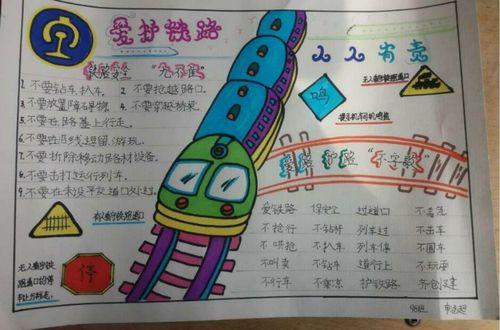 爱护铁路
人人有责
铁路安全 "九不准"
1. 不要钻车、扒车。 2. 不要抢越路口。
3. 不要放置障碍物。 4. 不要穿越桥梁。
5. 不要在路基上行走。
6. 不要在沿线逗留、游玩。
7. 不要拆除移动路材设备。
8. 不要击打运行列车。
9. 不要在未设平交道口处过。
无人看守铁路道口
鸣
要求机车司机鸣笛
爱路护路 "不字歌"
有人看守铁路道口
停
爱铁路 保安全 过道口 不
不抢行 不钻杆 列车过 不击车
不哄抢 不扒车 列车停 不围车
不叫卖 不钻车 道行上 不玩耍
不行车 不 护铁路 齐创建